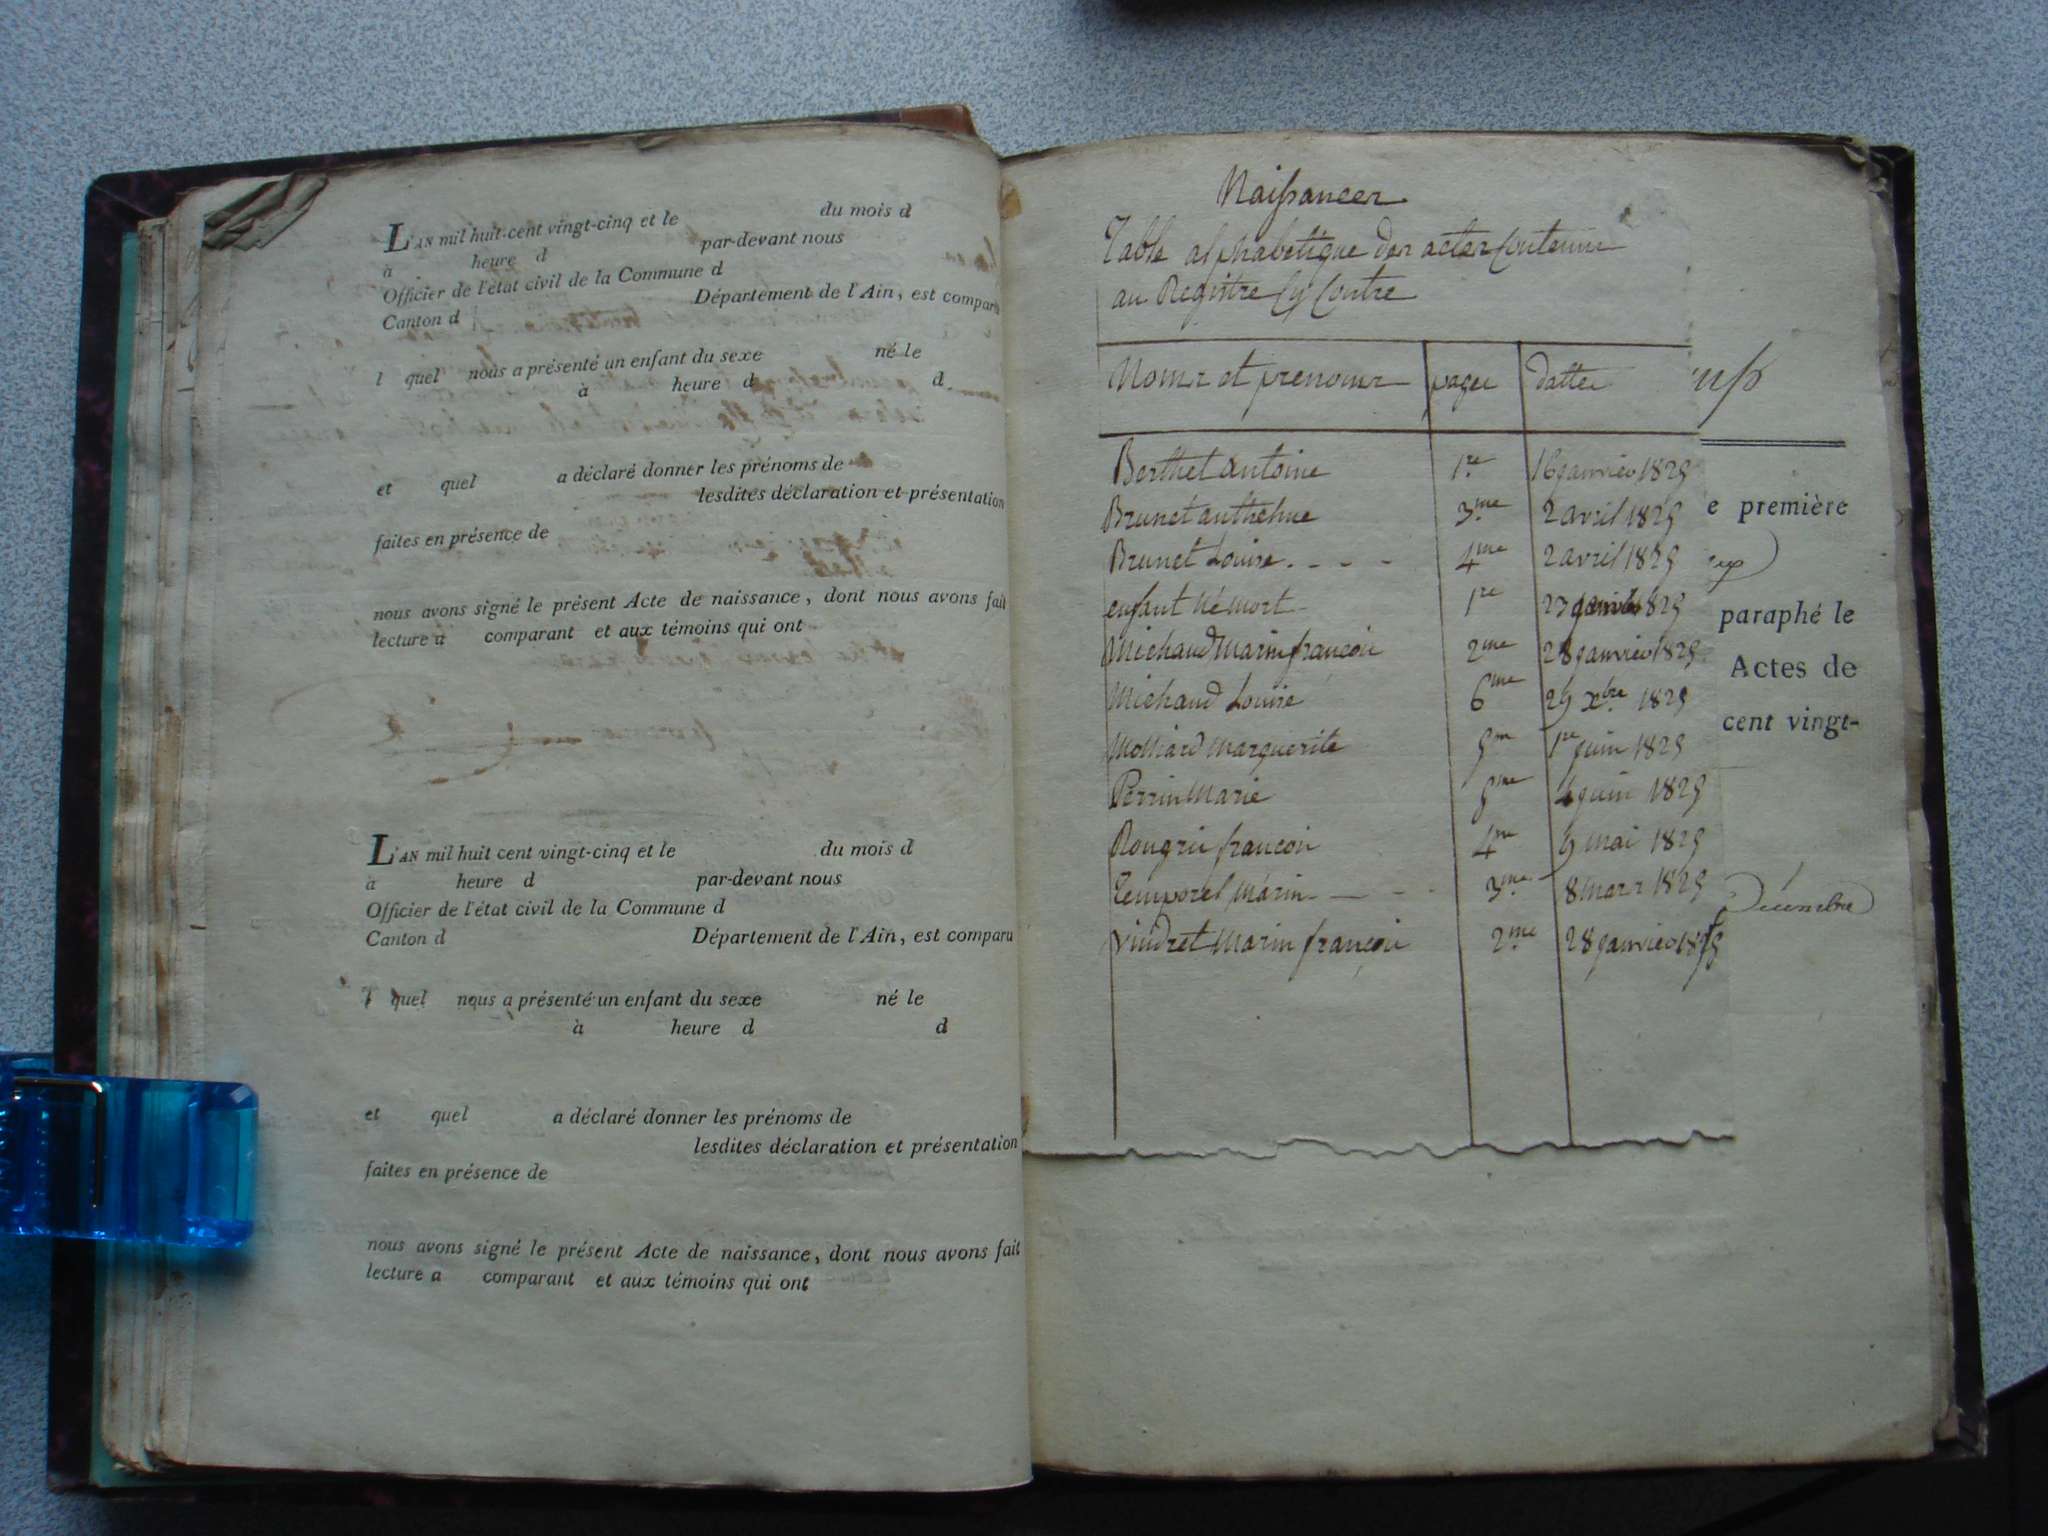 L'AN mil huit cent vingt-cinq et le du mois d
à heure d par-devant nous
Officier de l'état civil de la Commune d
Canton d Département de l'Ain, est comparu
l quel nous a présenté un enfant du sexe né le
à heure d d
et quel a déclaré donner les prénoms de
lesdites déclaration et présentation
faites en présence de
nous avons signé le présent Acte de naissance, dont nous avons fait
lecture a comparant et aux témoins qui ont
L'AN mil huit cent vingt-cinq et le du mois d
à heure d par-devant nous
Officier de l'état civil de la Commune d
Canton d Département de l'Ain, est comparu
l quel nous a présenté un enfant du sexe né le
à heure d d
et quel a déclaré donner les prénoms de
lesdites déclaration et présentation
faites en présence de
nous avons signé le présent Acte de naissance, dont nous avons fait
lecture a comparant et aux témoins qui ont
Naissances
Table alphabétique des actes Contenus
au Registre Cy Contre
Noms et prenoms pages dattes
Berthet antoine 1re 16 janvier 1825
Brunet anthelme 3me 2 avril 1825
Brunet Louise 4me 2 avril 1825
enfant Né Mort 1re 1825
Michaud Marin françois 2me 28 janvier 1825
Michaud Louise 6me 25 xbre 1825
Molliard Marguerite 5me 1re juin 1825
Perrin Marie 5me 4 juin 1825
françois 4me 5 mai 1825
Temporel Marin 3me 8 Mars 1825
vindret Marin françois 2me 28 janvier 1825
e première
paraphé le
Actes de
cent vingt-
Décembre